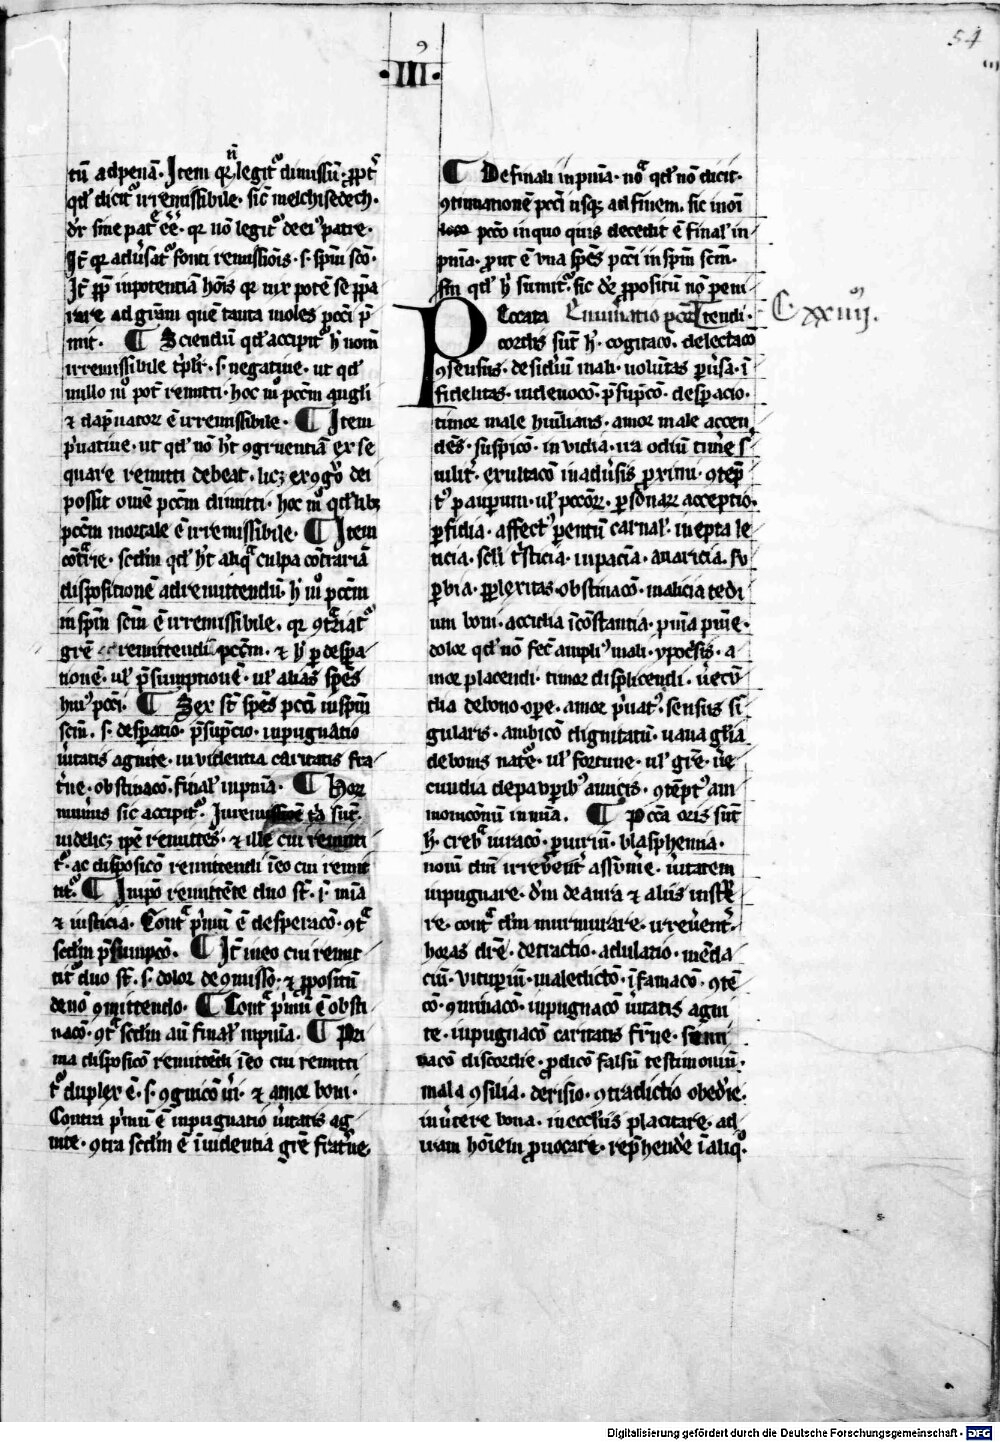 54
.III.
tū ad penā. Item qr n̄ legitᷣ dimissū. ꝓpt̄
qd̓ dicitᷣ irremissibile. sic̄ melchisedech.
dr̄ sine patre ēē. qr nō legitᷣ de eiꝰ patre.
It̄ qr aduˢatᷣ fonti remissiōis. s. spiritui sc̄o.
It̄ ꝓpt̄ inpotentiā hōis qr vix potē se p̄pa
rare ad gr̄am quē tanta moles pcc̄i p̄
mit. ¶ Sciendū qd̓ accipitᷣ h̓ nom̄
irremissibile tˢplr̄. s. negatiue. ut qd̓
nullo mᵒ pot̄ remitti. hoc mᵒ pcc̄m angl̓i
⁊ dāpnatorꝝ ē irremissibile. ¶ Item
pˢuatiue. ut qd̓ nō h̄t ꝯgruentiā ex se
quare remitti debeat. licꝫ ex ꝯgᵒ dei
possit om̄e pcc̄m dimitti. hoc mᵒ qd̓libꝫ
pcc̄m mortale ē irremissibile. ¶ Item
cōtrarie. scd̄m qd̓ h̄t aliqᵃ culpa cōtrariā
dispositionē ad remittendū. h̓ mᵒ pcc̄m
in spm̄ scm̄ ē irremissibile. qr ꝯtˢriatᷣ
gr̄e remittendi pcc̄m. ⁊ h̓ ꝑ despa
tionē. ul̓ p̄sumptionē. ul̓ alias spēs
huiꝰ pcc̄i. ¶ Sex st̄ spēs pcc̄i in spm̄
scm̄. s. desꝑatio. p̄supcio. inpugnatio
uˢitatis agnite. inuidentia caritatis fra
tˢne. obstinacō. final̓ inpn̄ia. ¶ Horꝝ
numˢus sic accipitᷣ. In remissione tˢa sūt.
uidelicꝫ ip̄e remittēs. ⁊ ille cui remitti
tᷣ. ac disposicō remittendi ī eo cui remit
titᷣ. ¶ In ip̄o remittēte duo st̄. s. mīa
⁊ iusticia. Contᵃ pˢmū ē desperacō. ꝯtᵃ
scd̄m p̄sumpcō. ¶ It̄ in eo cui remit
titᷣ duo st̄. s. dolor de ꝯmisso. ⁊ ꝓpositū
de nō ꝯmittendo. ¶ Contᵃ pˢmū ē obsti
nacō. ꝯtᵃ scd̄m aū final̓ inpn̄ia. ¶ Pri
ma disposicō remittēdi ī eo cui remitti
tᷣ duplex ē. s. ꝯgnicō uˢi. ⁊ amor boni.
Contra pˢmū ē inpugnatio uˢitatis ag
nite. ꝯtra scd̄m ē īuidentia gr̄e fratˢne.
¶ De finali inpn̄ia. noᵃ qd̓ nō dicit.
ꝯtinuationē pcc̄i usqꝫ ad finem. sic in oī
pcc̄o in quo quis decedit ē final̓ in
pn̄ia. prout ē vna spēs pcc̄i in spm̄ scm̄.
scd̄m qd̓ h̓ sumitᷣ. sic dr̄ ꝓpositū nō peni
tendi. Enumˢatio pcc̄orꝝ
C xxiiijᵒʳ.
Peccata
cordis sūt h̓. cogitacō. delectacō
ꝯsensus. desidˢiū mali. uolūtas pˢuˢsa. ī
fidelitas. indeuocō. p̄supcō. desperacio.
timor male hūilians. amor male accen
dēs. suspicō. inuidia. ira odiū timˢe sˢ
uilitˢ. exultacō in aduˢsis proximi. ꝯtēp̄
tꝰ pauperum. ul̓ pecc̄orꝝ. personarꝝ acceptio.
perfidia. affectꝰ parentū carnal̓. inepta le
ticia. sc̄li tˢsticia. inpaciā. auaricia. su
perbia. perplexitas. obstinacō. malicia tedi
um boni. accidia īcōstantia. pn̄ia pn̄ie.
dolor qd̓ nō fec̄ ampliꝰ mali. ypocˢisis. a
mor placendi. timor displicendi. uˢecū
dia de bono opere. amor pˢuatꝰ. sensus si
gularis. ambicō dignitatū. uana gl̓ia
de bonis natˢe. ul̓ fortune. ul̓ gr̄e. uˢe
cundia de pauperibꝰ amicis. ꝯtēptꝰ am
monicōnū in uīa. ¶ Pcc̄a oris sūt
h̓. crebᵃ iuracō. periuriū. blasphemia.
nom̄ dn̄i irreuˢentˢ assumˢe. uˢitatem
inpugnare. dˢm de aura ⁊ aliis
re. contᵃ dm̄ murmurare. irreuˢentˢ
horas dicˢe. detractio. adulatio. mēda
ciū. vituperiū. maledictō. īfamacō. ꝯtē
cō. ꝯminacō. inpugnacō uˢitatis agni
te. inpugnacō caritatis fr̄ne. semi
nacō discordie. prodicō falsū testimoniū.
mala ꝯsilia. derisio. ꝯtradictio obedˢie.
inuˢtere bona. in eccl̓iis placitare. ad
iram hōiem prouocare. rep̄hendˢe ī aliqᵒ.
Digitalisierung gefördert durch die Deutsche Forschungsgemeinschaft - DFG